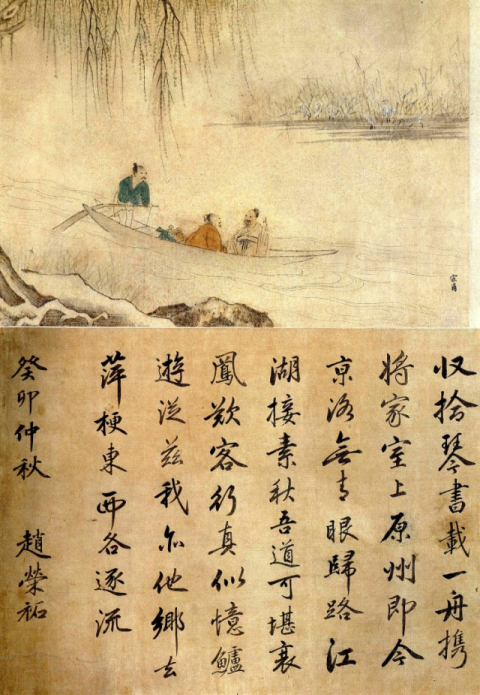 宗甫
収拾琴書載一舟携
將家室上原州即今
京洛無青眼歸路江
湖接素秋吾道可堪衰
鳳歎客行真似憶鱸
遊從茲我亦他鄉去
萍梗東西各逐流
癸卯仲秋 趙榮祏